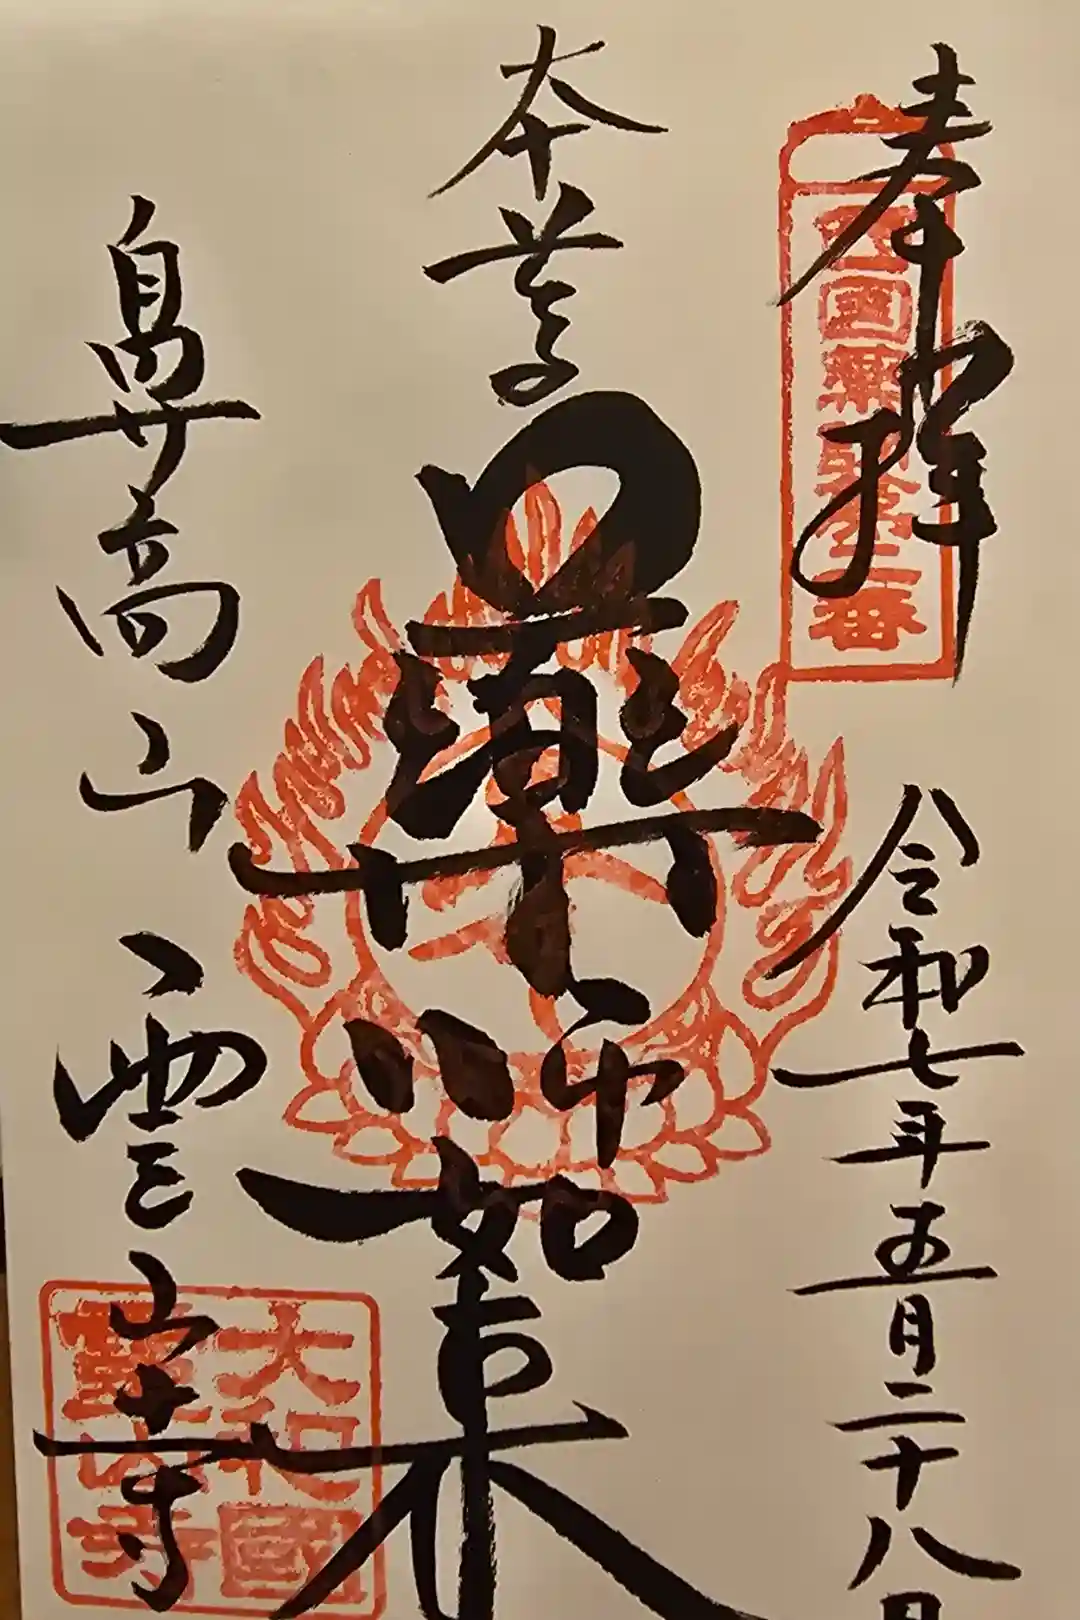 奉拝
西国薬師第二番
令和七年五月二十八日
本尊
薬師如来
鼻高山
霊山寺
大和國
霊山寺